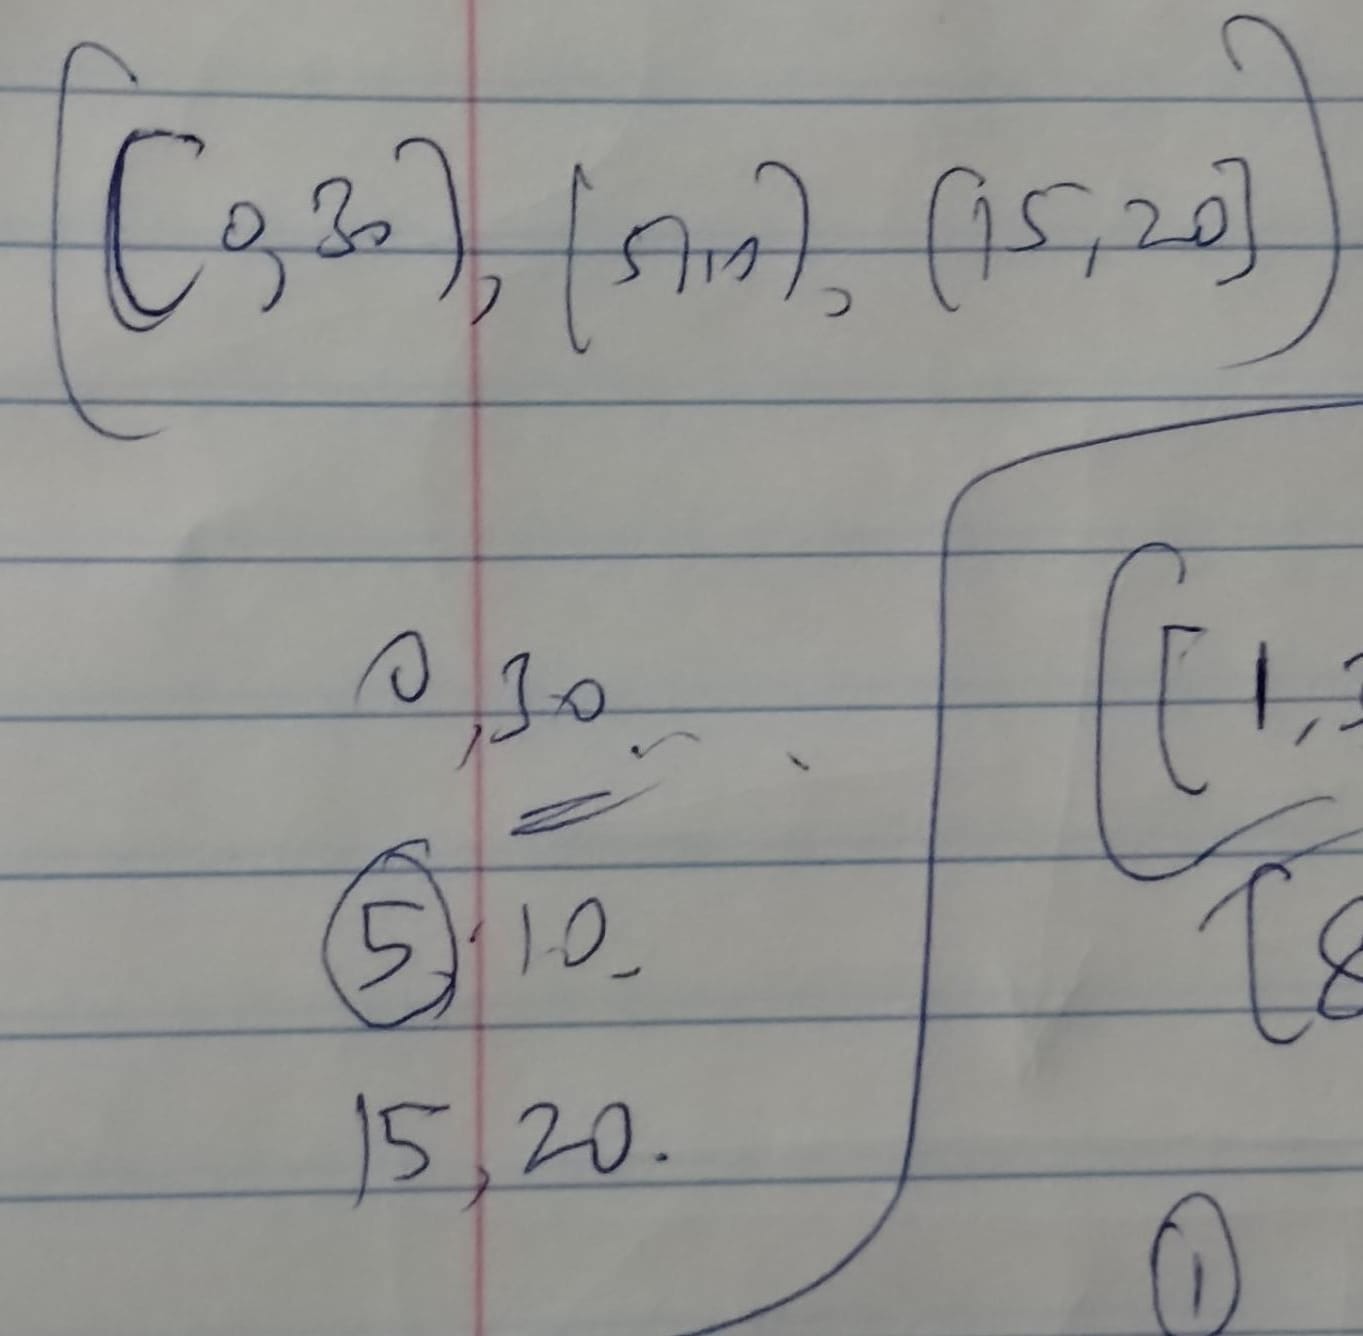 [[0,30], [5,10], [15,20]]
0,30
5,10
15,20.
[[1,3
[8
1